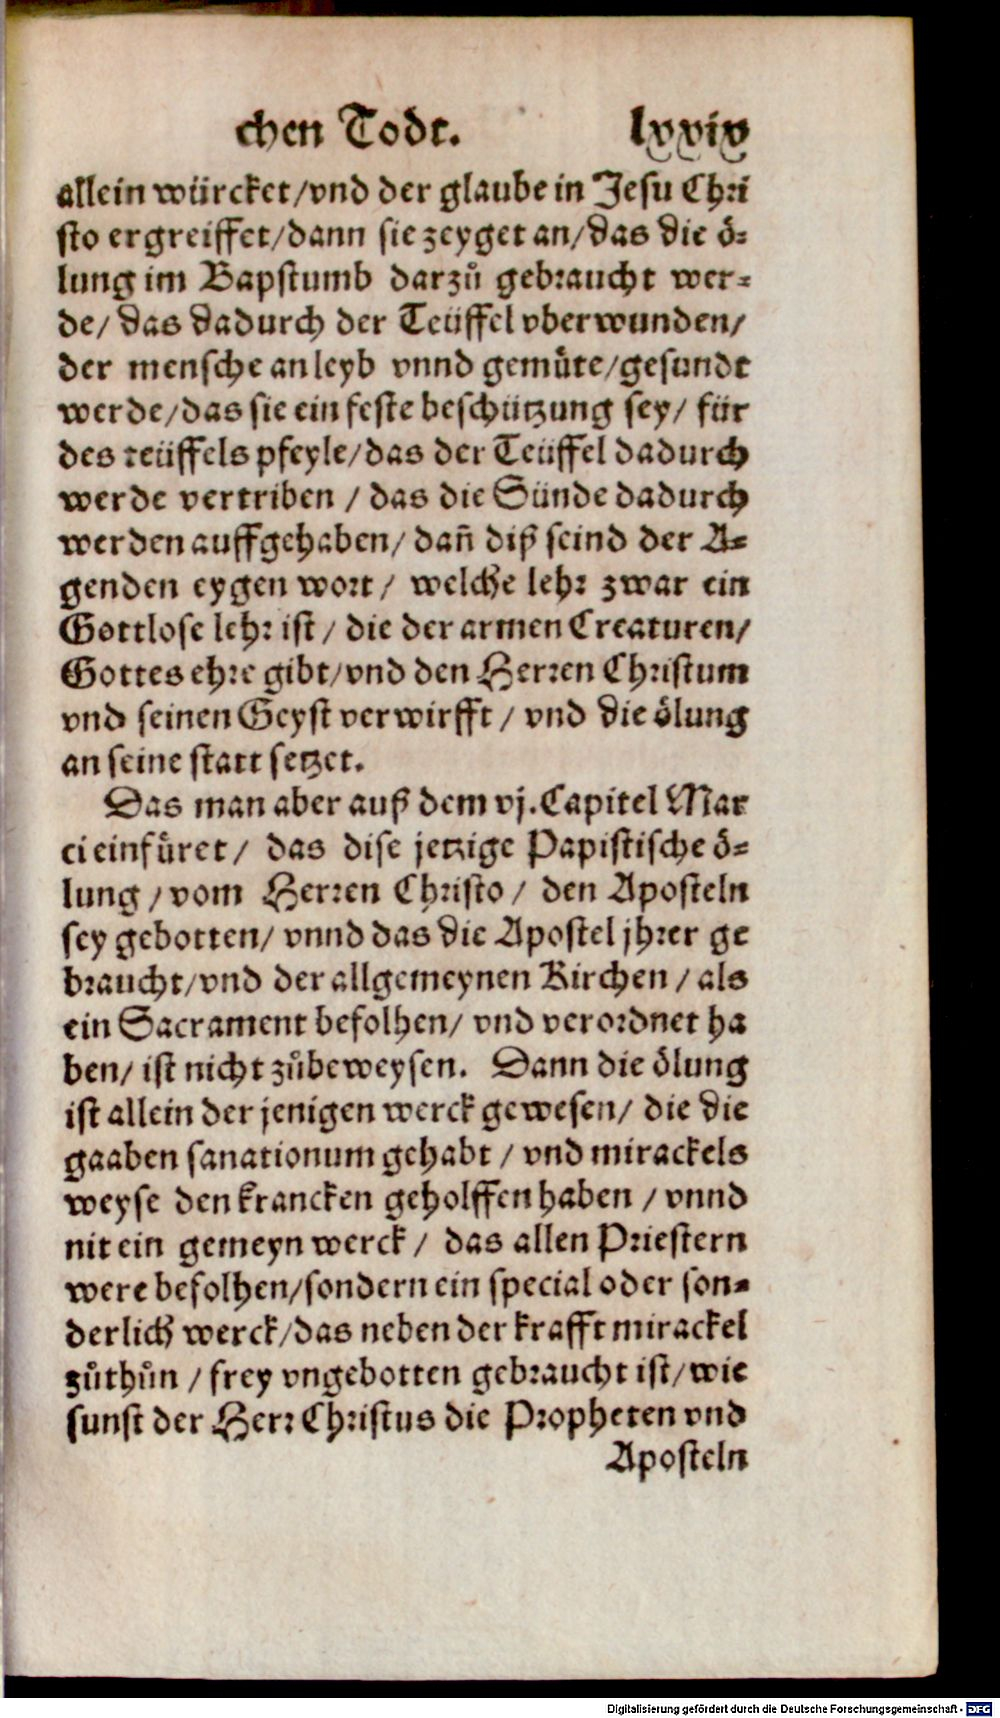 chen Todt. lxxix
allein würcket/vnd der glaube in Jesu Chri
sto ergreiffet/dann sie zeyget an/das die ö=
lung im Bapstumb darzů gebraucht wer=
de/ das dadurch der Teüffel vberwunden/
der mensche an leyb vnnd gemüte/gesundt
werde/das sie ein feste beschützung sey/ für
des teüffels pfeyle/das der Teüffel dadurch
werde vertriben / das die Sünde dadurch
werden auffgehaben/ dañ diß seind der A=
genden eygen wort/ welche lehr zwar ein
Gottlose lehr ist / die der armen Creaturen/
Gottes ehre gibt/vnd den Herren Christum
vnd seinen Geyst verwirfft / vnd die ölung
an seine statt setzet.
Das man aber auß dem vj. Capitel Mar
ci einfüret/ das dise jetzige Papistische ö=
lung / vom Herren Christo / den Aposteln
sey gebotten/ vnnd das die Apostel jhrer ge
braucht/vnd der allgemeynen Kirchen / als
ein Sacrament befolhen/ vnd verordnet ha
ben/ ist nicht zůbeweysen. Dann die ölung
ist allein der jenigen werck gewesen/ die die
gaaben sanationum gehabt / vnd mirackels
weyse den krancken geholffen haben / vnnd
nit ein gemeyn werck / das allen Priestern
were befolhen/sondern ein special oder son=
derlich werck/das neben der krafft mirackel
zůthůn / frey vngebotten gebraucht ist/wie
sunst der Herr Christus die Propheten vnd
Aposteln
Digitalisierung gefördert durch die Deutsche Forschungsgemeinschaft - DFG